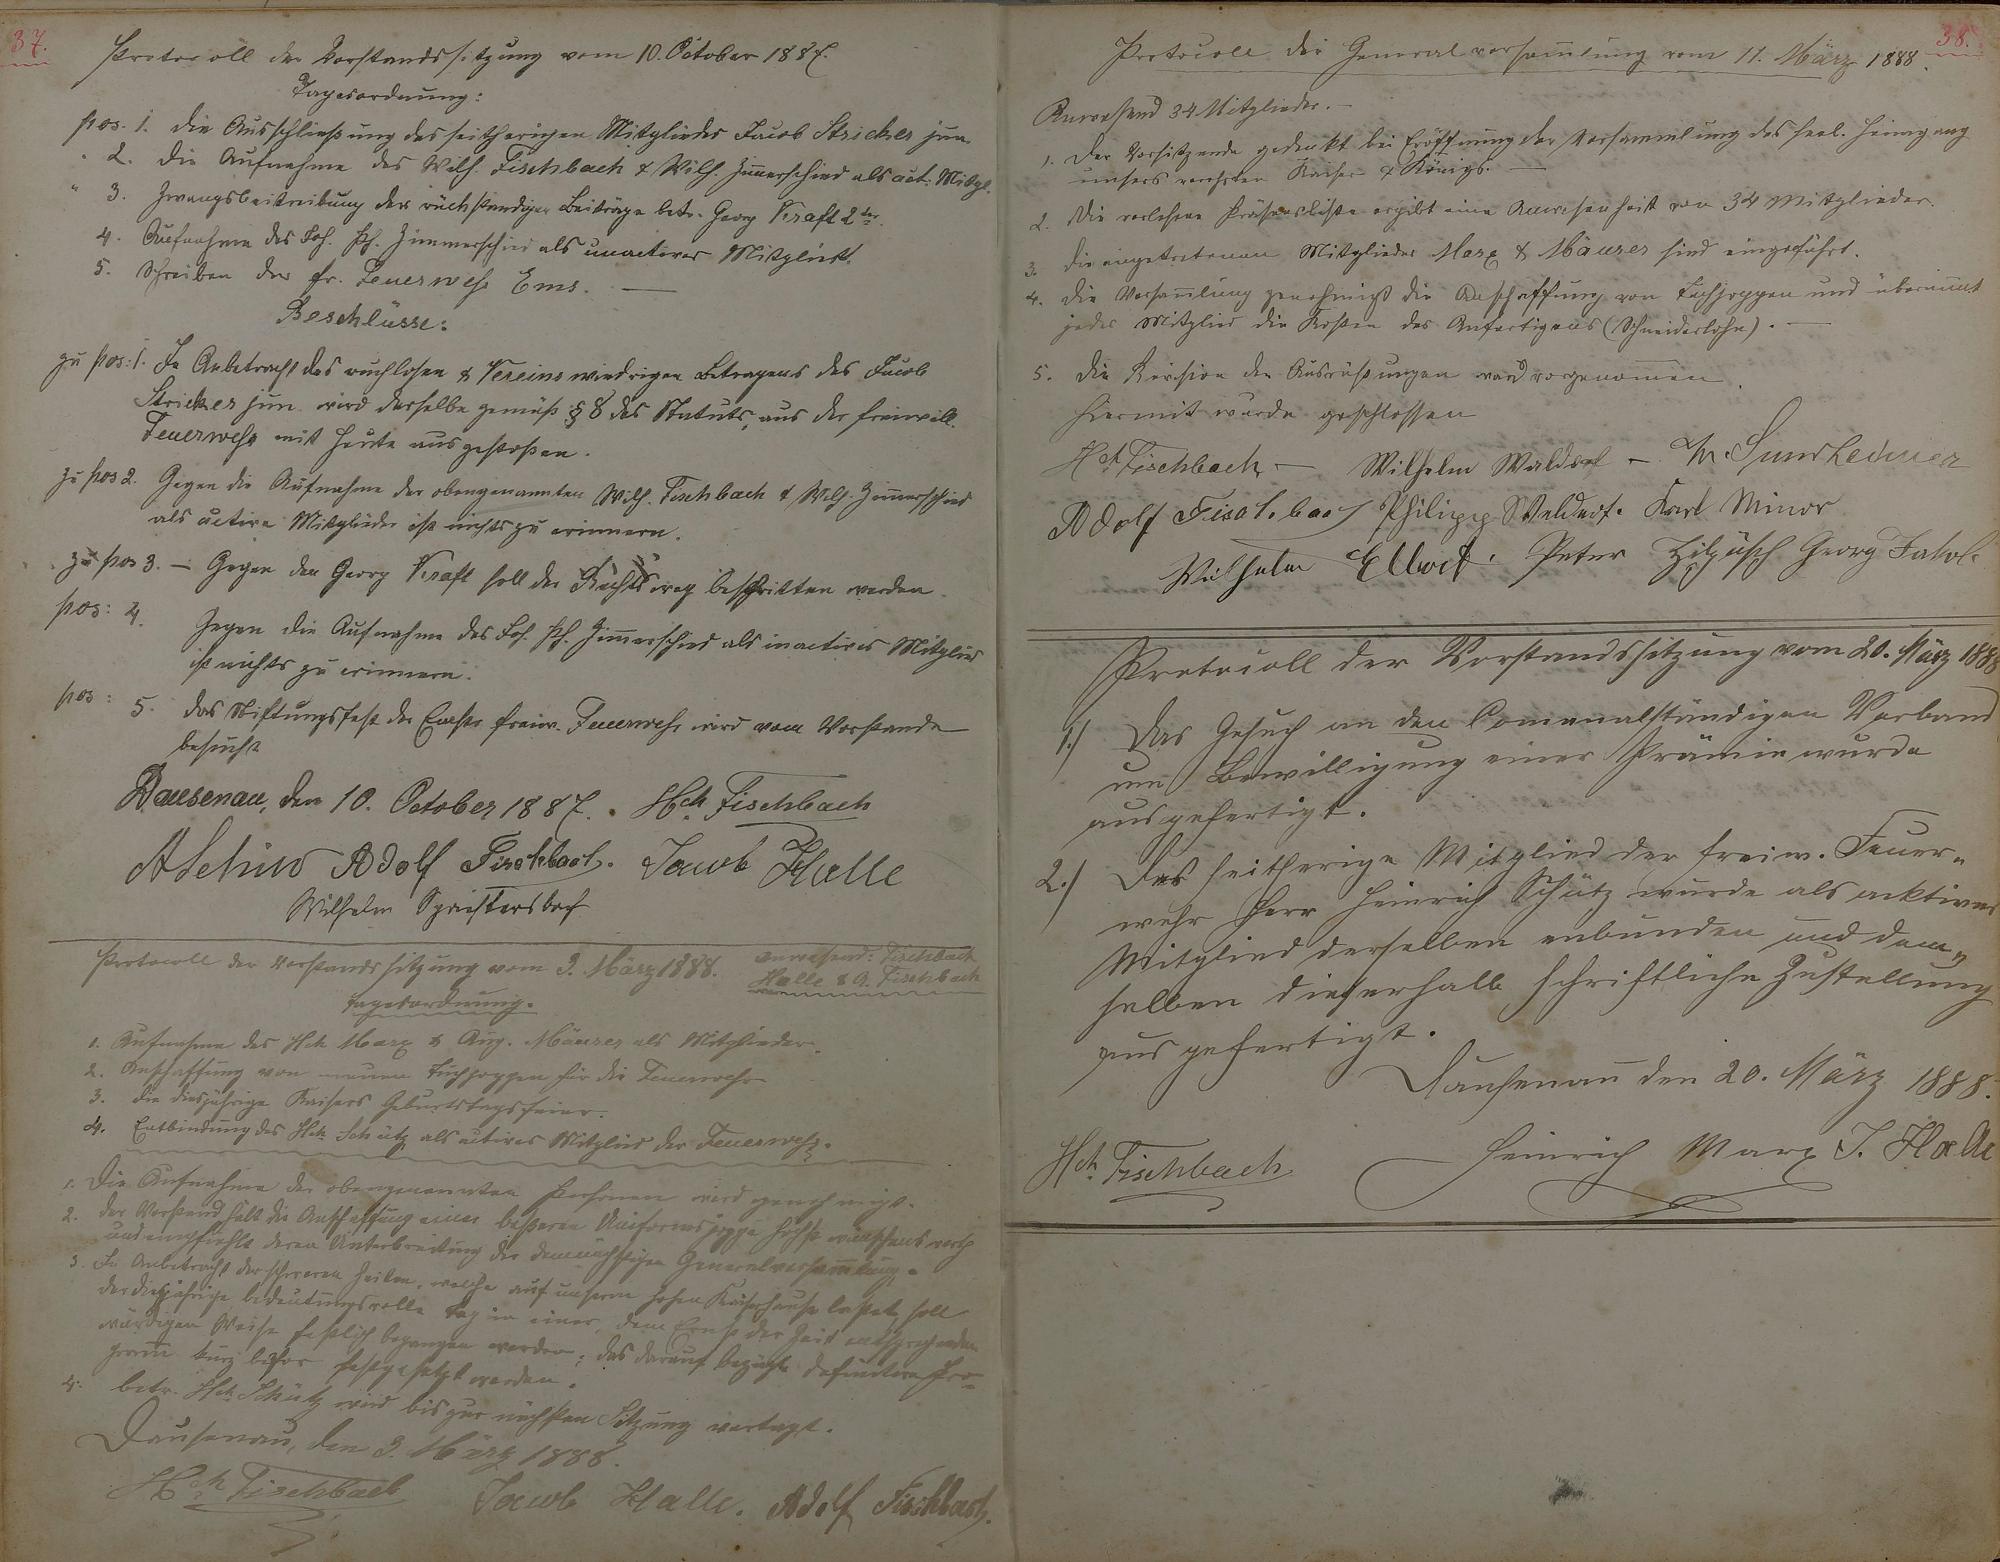 37.
Protocoll der Vorstandssitzung vom 10. October 1887.
Tagesordnung:
pos. 1. Die Ausschließung des seitherigen Mitgliedes Jacob Stricker jun.
" 2. Die Aufnahme des Wilh. Fischbach & Wilh. Zimerschied als act. Mitgl.
" 3. Zwangsbeitreibung der rückständigen Beiträge betr. Georg Kraft 2ter.
4. Aufnahme des Joh. Ph. Zimmerschied als unactives Mitglied.
5. Schreiben der fr. Feuerwehr Ems. —
Beschlüsse:
zu pos: 1. In Anbetracht des ruchlosen & Vereins wiedrigen Betragens des Jacob
Stricker jun. wird derselbe gemäß § 8 des Statuts, aus der freiwill.
Feuerwehr mit heute ausgestoßen.
zu pos 2. Gegen die Aufnahme der obengenannten Wilh. Fischbach & Wilh. Zimerschied
als active Mitglieder ist nichts zu erinnern.
zu pos 3. — Gegen den Georg Kraft soll der Rechtsweg beschritten werden.
pos: 4. Gegen die Aufnahme des Joh. Ph. Zimerschied als inactives Mitglied
ist nichts zu erinnern.
pos: 5. Das Stiftungsfest der Emser freiw. Feuerwehr wird vom Vorstande
besucht
Dausenau, den 10. October 1887. Hch. Fischbach
Adolf Fischbach. Jacob Halle
Wilhelm
Protocoll der Vorstandssitzung vom 3. März 1888. anwesend: Fischbach
Halle & A. Fischbach
Tagesordnung.
1. Aufnahme des Hch Marx & Aug. Mäurer als Mitglieder.
2. Anschaffung von neuen Tuchjoppen für die Feuerwehr
3. Die diesjährige Kaisers Geburtstagsfeier.
4. Entbindung des Hch. Schütz als actives Mitglied der Feuerwehr.
1. Die Aufnahme der obengenannten Personen wird genehmigt.
2. Der Vorstand hält die Anschaffung einer besseren Uniformsjoppe höchst wünschenswerth
und empfiehlt deren Unterbreitung der demnächstigen Generalversammlung.
3. In Anbetracht der schweren Zeiten, welche auf unserm hohen Kaiserhause lastet, soll
der diesjährige bedeutungsvolle Tag in einer, dem Ernste der Zeit entsprechenden
würdigen Weise festlich begangen werden; das darauf bezügl. definitive Pro-
gramm kurz bevor festgesetzt werden.
4. betr. Hch. Schütz wird bis zur nächsten Sitzung vertagt.
Dausenau, den 3. März 1888.
Hch. Fischbach Jacob Halle. Adolf Fischbach.
38.
Protocoll der Generalversammlung vom 11. März 1888.
Anwesend 34 Mitglieder. —
1. Der Vorsitzende gedenkt bei Eröffnung der Versammlung des seel. Heimgang
unsers verehrten Kaiser & Königs. —
2. Die verlesene Präsensliste ergibt eine Anwesenheit von 34 Mitglieder.
3. Die eingetretenen Mitglieder Marx & Mäurer sind eingeführt.
4. Die Versamlung genehmigt die Anschaffung von Tuchjoppen und übernimt
jedes Mitglied die Kosten des Anfertigens (Schneiderlohn). —
5. Die Revision der Ausrüstungen ward vorgenommen.
Hiermit wurde geschlossen
Hch Fischbach — Wilhelm —
Adolf Fischbach Philipp Karl Minor
Wilhelm Peter Georg
Protocoll der Vorstandssitzung vom 20. März 1888
1.) Das Gesuch an den Comunalständigen Verband
um Bewilligung einer Prämie wurde
ausgefertigt.
2.) Das seitherige Mitglied der freiw. Feuer-
wehr Herr Heinrich Schütz wurde als aktives
Mitglied derselben enbunden und dem-
selben dieserhalb schriftliche Zustellung
ausgefertigt.
Dausenau den 20. März 1888.
Hch. Fischbach Heinrich Marx J. Halle